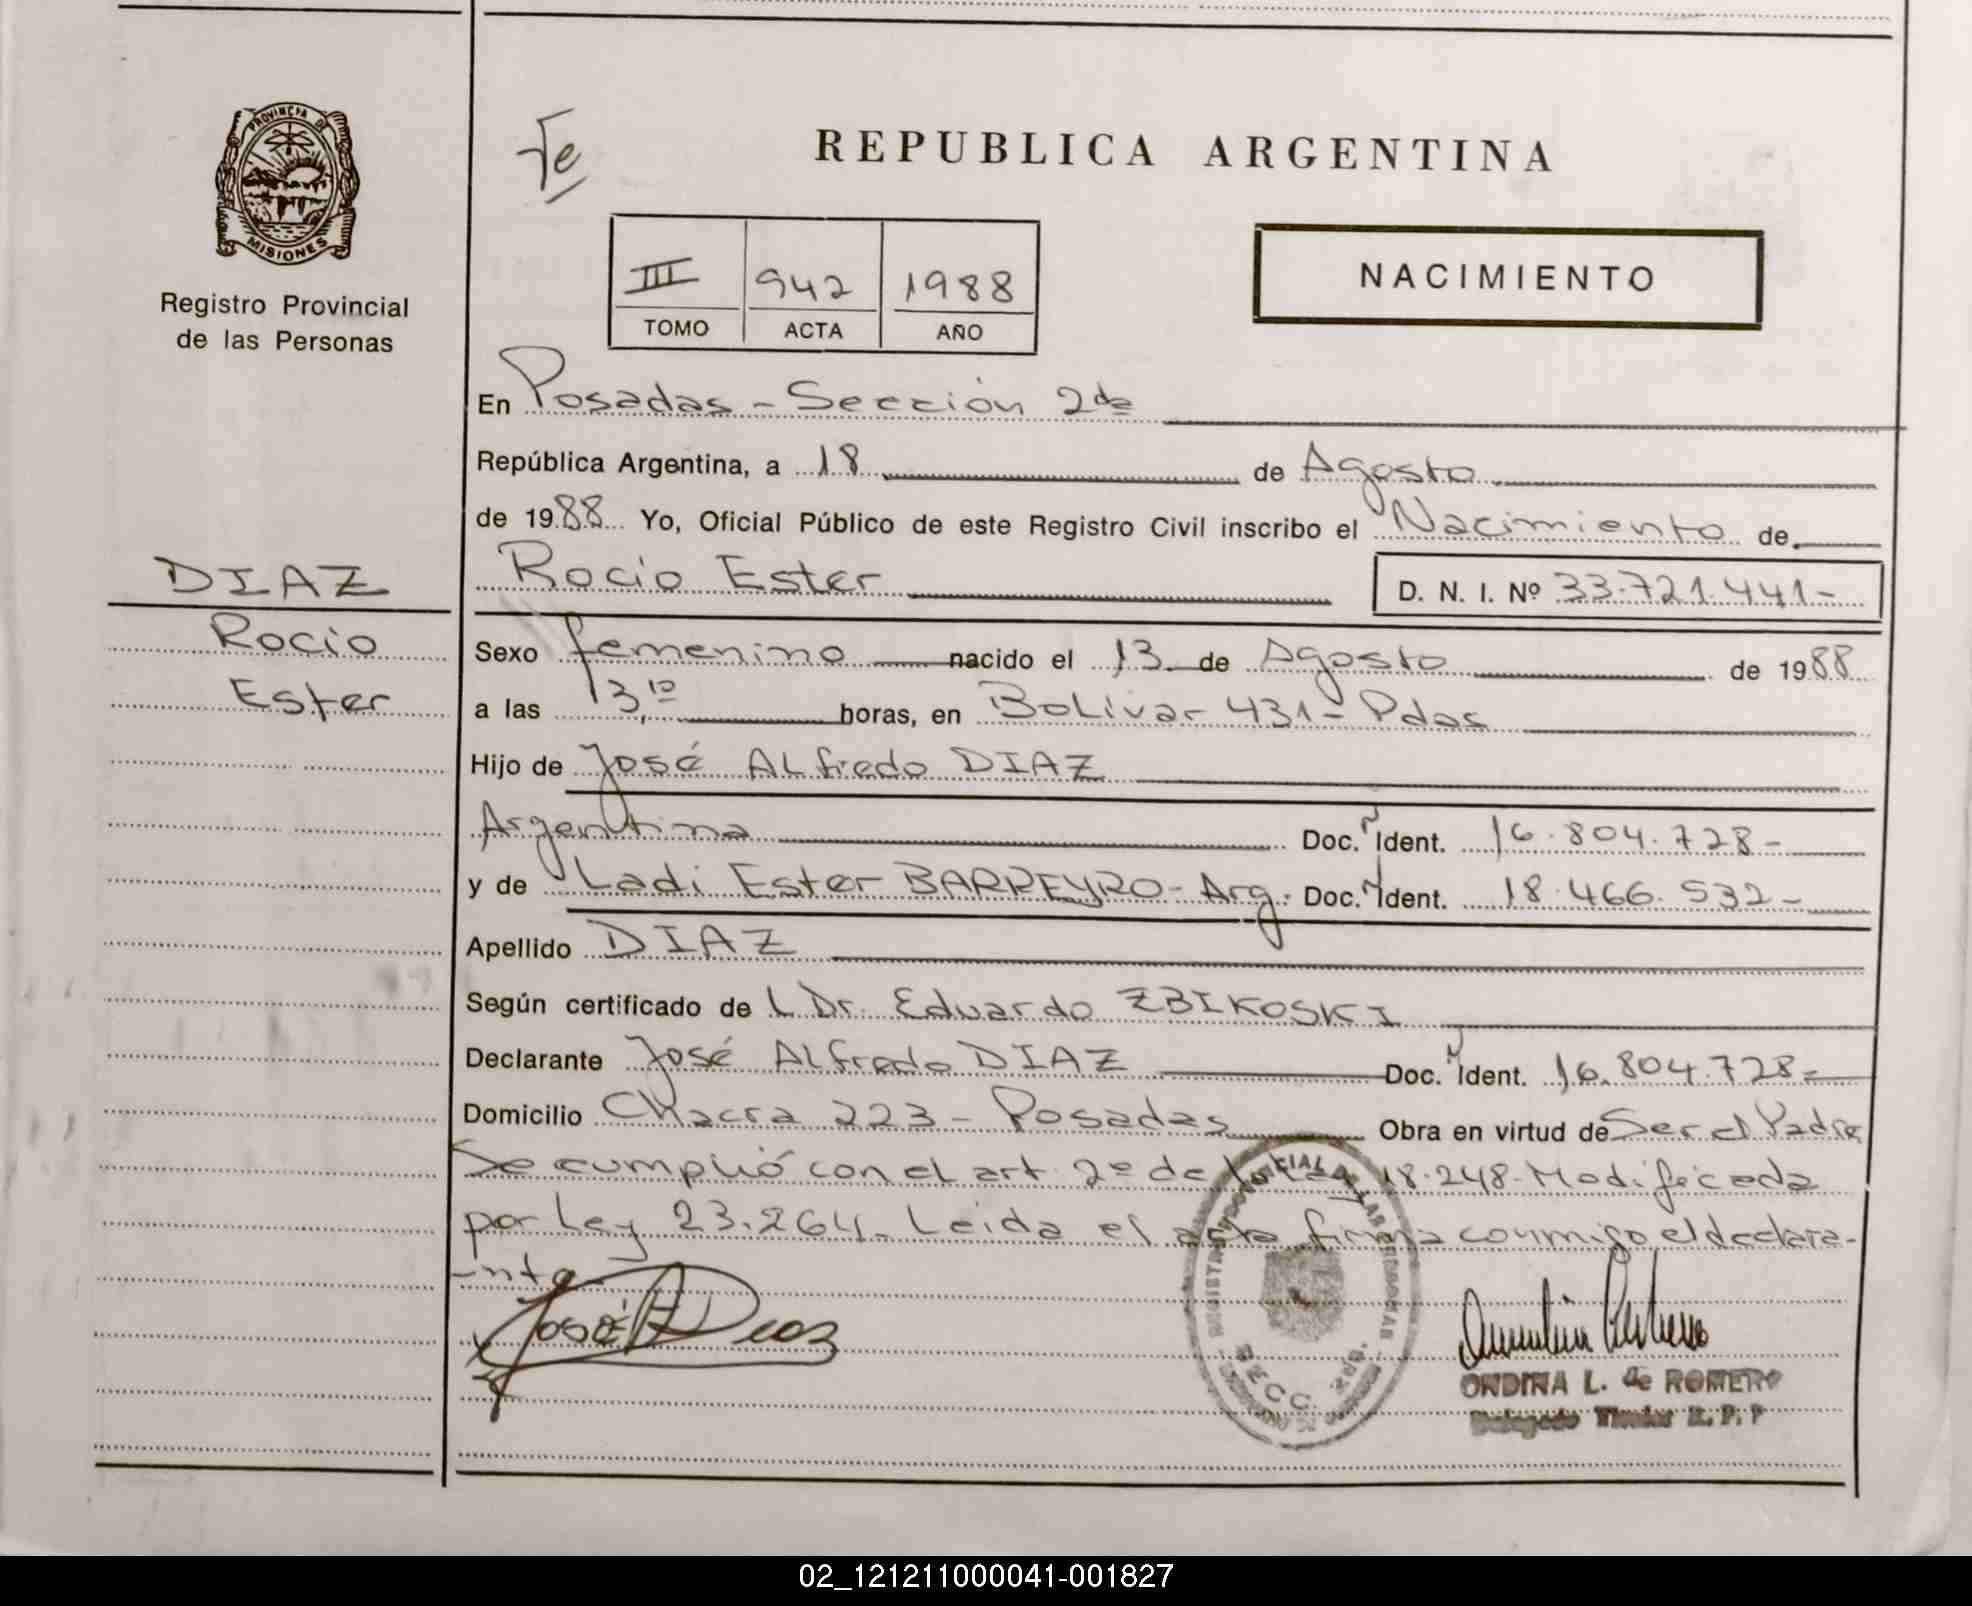 PROVINCIA DE
MISIONES
Registro Provincial
de las Personas
REPUBLICA ARGENTINA
NACIMIENTO
III 942 1988
TOMO ACTA AÑO
En Posadas - Sección 2da
República Argentina, a 18 de Agosto
de 1988 Yo, Oficial Público de este Registro Civil inscribo el Nacimiento de
DIAZ
Rocio
Ester
Rocio Ester D. N. I. Nº 33.721.441-
Sexo femenino nacido el 13 de Agosto de 1988
a las 13,10 horas, en Bolivar 431 - Pdas
Hijo de José Alfredo DIAZ
Argentina Doc. Ident. 16.804.728-
y de Ladi Ester BARREYRO - Arg. Doc. Ident. 18.466.532-
Apellido DIAZ
Según certificado de L Dr. Eduardo ZBIKOSKI
Declarante José Alfredo DIAZ Doc. Ident. 16.804.728-
Domicilio Chacra 223 - Posadas Obra en virtud de Ser el Padre
Se cumplió con el art. 2º de la Ley 18.248 - Modificada
por Ley 23.264. Leida el acta firma conmigo el declara-
-nte
José A Diaz
SECC. 2da.
ONDINA L. de ROMERO
02_121211000041-001827